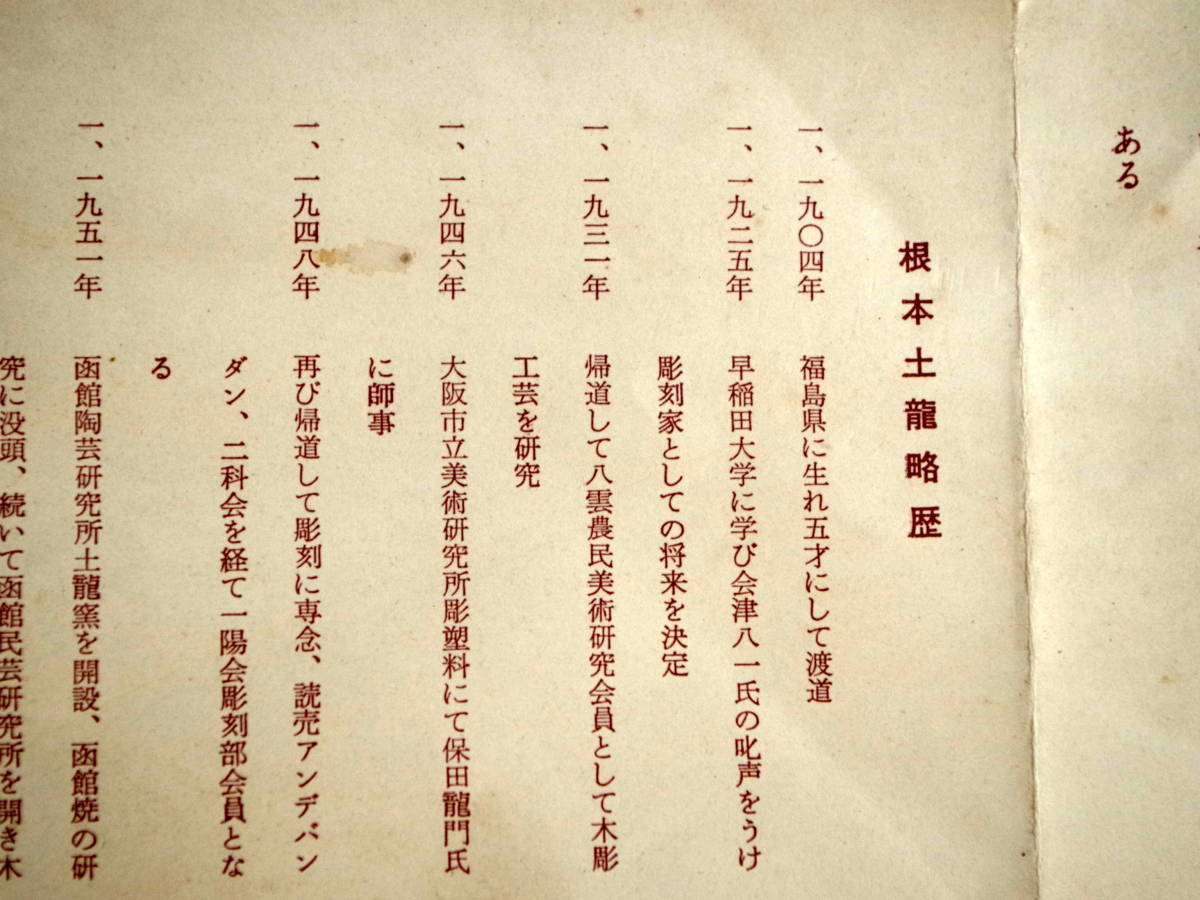 ある
根本土龍略歴
一、一九〇四年 福島県に生れ五才にして渡道
一、一九二五年 早稲田大学に学び会津八一氏の叱声をうけ
彫刻家としての将来を決定
一、一九三一年 帰道して八雲農民美術研究会員として木彫
工芸を研究
一、一九四六年 大阪市立美術研究所彫塑料にて保田龍門氏
に師事
一、一九四八年 再び帰道して彫刻に専念、読売アンデパン
ダン、二科会を経て一陽会彫刻部会員とな
る
一、一九五一年 函館陶芸研究所土龍窯を開設、函館焼の研
究に没頭、続いて函館民芸研究所を開き木